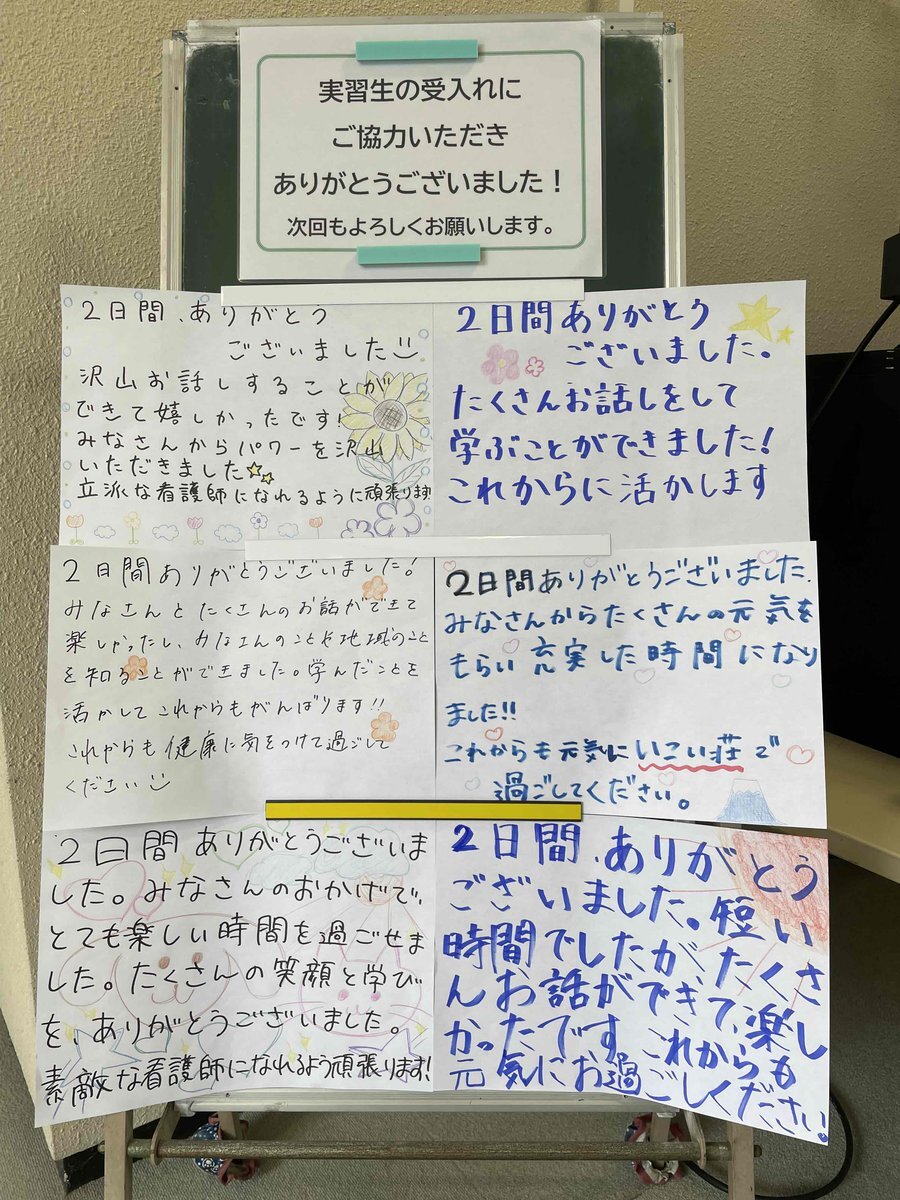 実習生の受入れに
ご協力いただき
ありがとうございました！
次回もよろしくお願いします。
2日間、ありがとう
ございました
沢山お話しすることが
できて嬉しかったです!
みなさんからパワーを沢山
いただきました
立派な看護師になれるように頑張ります!
2日間ありがとう
ございました。
たくさんお話しをして
学ぶことができました!
これからに活かします
2日間ありがとうございました!
みなさんとたくさんのお話ができて
楽しかったし、みなさんのことや地域のこと
を知ることができました。学んだことを
活かしてこれからもがんばります!!
これからも健康に気をつけて過ごして
ください
2日間ありがとうございました.
みなさんからたくさんの元気を
もらい充実した時間になり
ました!!
これからも元気にいこい荘で
過ごしてください。
2日間ありがとうございま
した。みなさんのおかげで、
とても楽しい時間を過ごせま
した。たくさんの笑顔と学び
を、ありがとうございました。
素敵な看護師になれるよう頑張ります!
2日間、ありがとう
ございました。短い
時間でしたが、たくさ
んお話ができて、楽し
かったです。これからも
元気にお過ごしください。